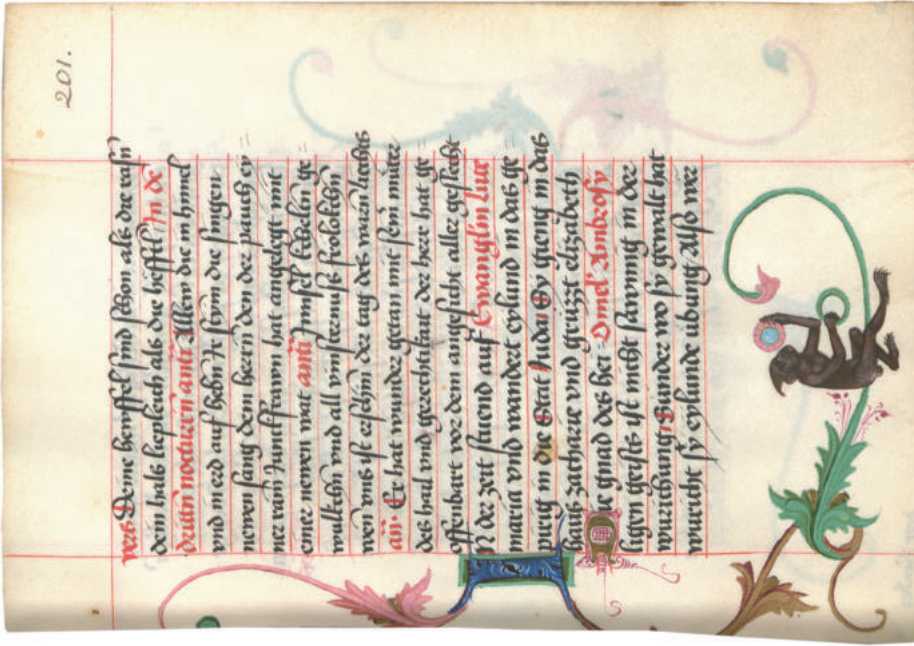 201.
vers Deine heuffel sind schon als die rasn
dein hals liepleich als die hefftl In de
dritn nocturn anti Allew die in himel
vnd in erd auf hebn Ir stym die singen
newen sang dem hern den der pauch ey=
ner rain Junkfrawn hat angelegt mit
einer newen wat anti Jnnsel schaln ge=
wolkchn vnd all vinsternuss frolokchn
wen vns ist erschin der tag des warn liechts
an. Er hat wunder getan mit sein muter
des hail vnd gerechtikait der herr hat ge=
offenbart vor dem angesicht aller geslecht
IN der zeit stuend auf Ewangelin luce
maria vnd wandert eylund in das ge=
puerg in die Stat Juda Sy gieng in das
haus zacharie vnd gruzzt elizabeth
die gnad des hei= Omel Ambrosy
ligen geists ist nicht sawmig in der
wurchhang Bunder wo sy gewalt hat
wuricht sy eylunde ubung Also wer